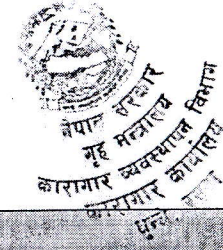 नेपाल सरकार
गृह मन्त्रालय
कारागार व्यवस्थापन विभाग
कारागार कार्यालय